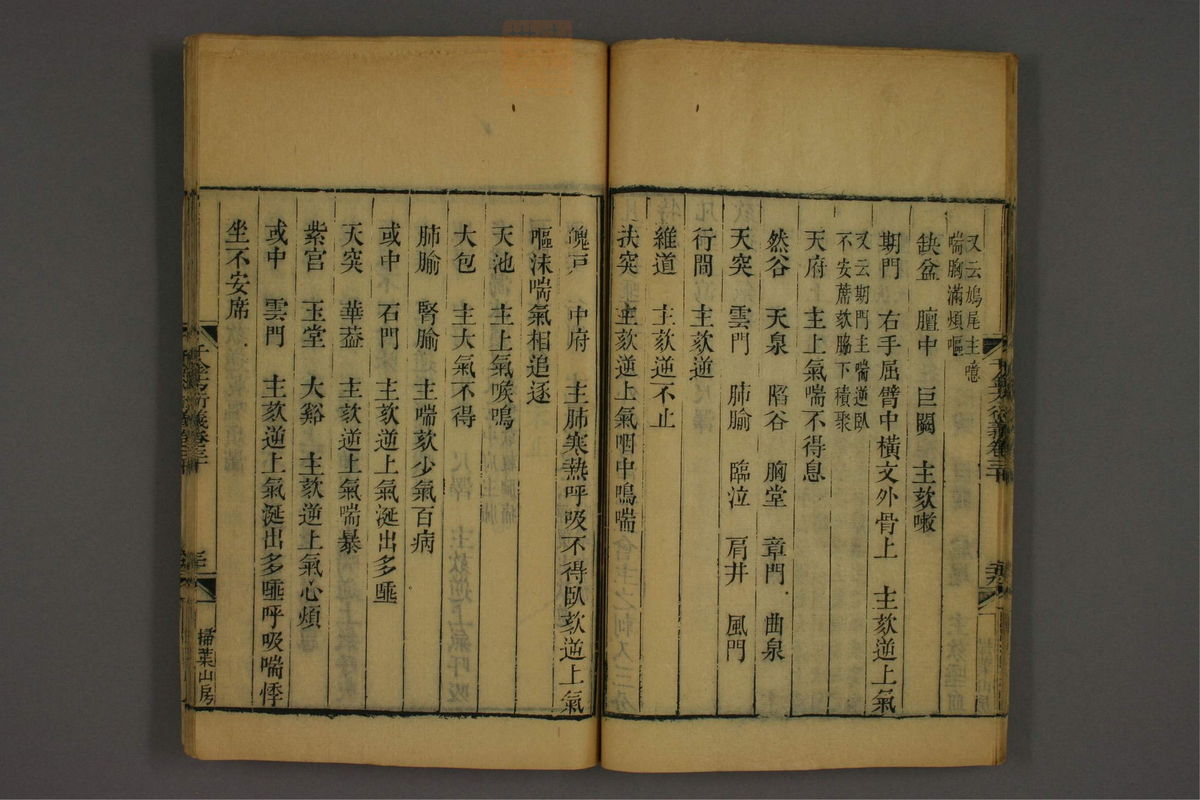 又云鳩尾主噫
喘胸滿煩嘔
缺盆　膻中　巨闕　主欬嗽
期門　右手屈臂中橫文外骨上　主欬逆上氣
又云期門主喘逆臥
不安蓆欬脇下積聚
天府　主上氣喘不得息
然谷　天泉　陷谷　胸堂　章門　曲泉
天突　雲門　肺腧　臨泣　肩井　風門
行間　主欬逆
維道　主欬逆不止
扶突　主欬逆上氣咽中鳴喘
魄戶　中府　主肺寒熱呼吸不得臥欬逆上氣
嘔沫喘氣相追逐
天池　主上氣喉鳴
大包　主大氣不得
肺腧　腎腧　主喘欬少氣百病
或中　石門　主欬逆上氣涎出多唾
天突　華蓋　主欬逆上氣喘暴
紫宮　玉堂　大谿　主欬逆上氣心煩
或中　雲門　主欬逆上氣涎出多唾呼吸喘悸
坐不安席
掃葉山房